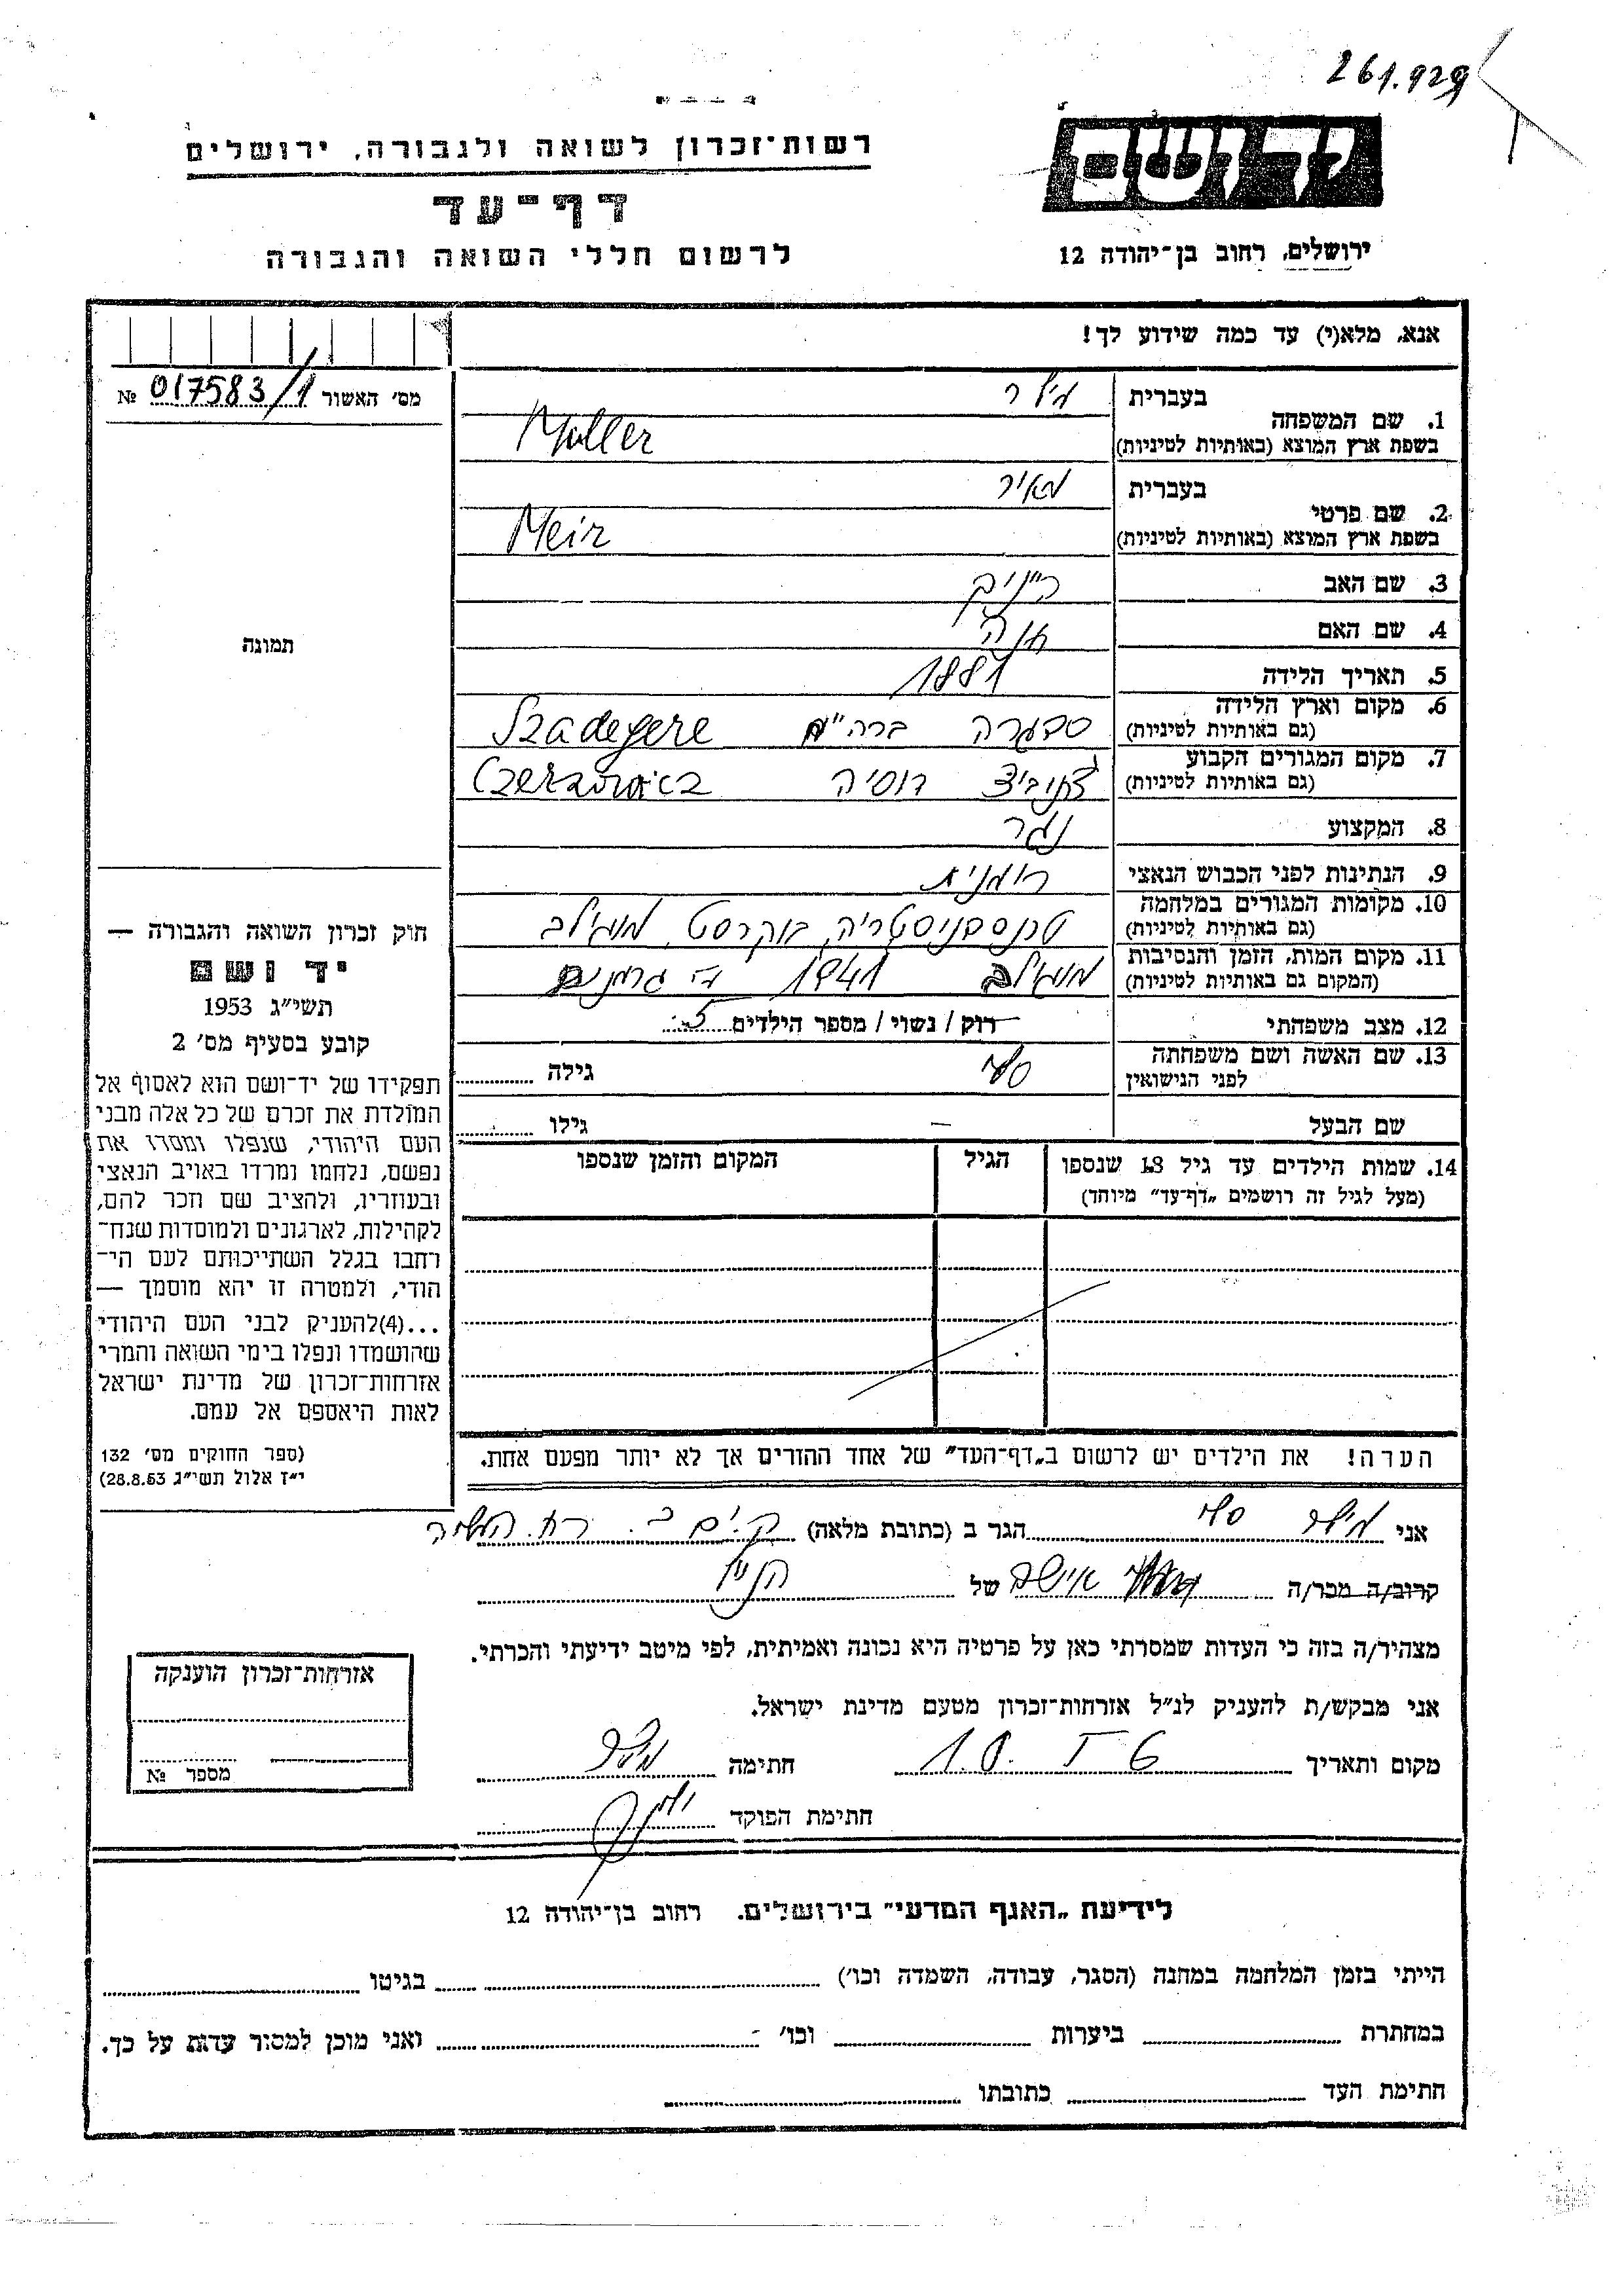 261.929
רשות־זכרון לשואה ולגבורה, ירושלים
יד ושם
דף־עד
לרשום חללי השואה והגבורה
ירושלים, רחוב בן־יהודה 12
אנא, מלא(י) עד כמה שידוע לך!
מס׳ האשור № 017583/1
1. שם המשפחה
בעברית מילר
בשפת ארץ המוצא (באותיות לטיניות) Muller
2. שם פרטי
בעברית מאיר
בשפת ארץ המוצא (באותיות לטיניות) Meir
3. שם האב
4. שם האם חנה
תמונה
5. תאריך הלידה 1881
6. מקום וארץ הלידה
(גם באותיות לטיניות) סדגרה ברה״מ Szadegere
7. מקום המגורים הקבוע
(גם באותיות לטיניות) רוסיה
8. המקצוע נגר
9. הנתינות לפני הכבוש הנאצי רומנית
10. מקומות המגורים במלחמה
(גם באותיות לטיניות) טרנסניסטריה, בוקרסט, מוגילב
11. מקום המות, הזמן והנסיבות
(המקום גם באותיות לטיניות) מוגילב 1941 גרמנים
12. מצב משפחתי רוק / נשוי / מספר הילדים 5
13. שם האשה ושם משפחתה
לפני הנישואין סלי גילה
שם הבעל – גילו
14. שמות הילדים עד גיל 18 שנספו
(מעל לגיל זה רושמים „דף־עד״ מיוחד)
הגיל
המקום והזמן שנספו
חוק זכרון השואה והגבורה —
יד ושם
תשי״ג 1953
קובע בסעיף מס׳ 2
תפקידו של יד־ושם הוא לאסוף אל
המולדת את זכרם של כל אלה מבני
העם היהודי, שנפלו ומסרו את
נפשם, נלחמו ומרדו באויב הנאצי
ובעוזריו, ולהציב שם וזכר להם,
לקהילות, לארגונים ולמוסדות שנח־
רחבו בגלל השתייכותם לעם הי־
הודי, ולמטרה זו יהא מוסמך —
...(4)להעניק לבני העם היהודי
שהושמדו ונפלו בימי השואה והמרי
אזרחות־זכרון של מדינת ישראל
לאות היאספם אל עמם.
(ספר החוקים מס׳ 132
י״ז אלול תשי״ג 28.8.53)
הערה! את הילדים יש לרשום ב„דף־העד״ של אחד ההורים אך לא יותר מפעם אחת.
אני מילר סלי הגר ב (כתובת מלאה)
קרוב/ה מכר/ה של
מצהיר/ה בזה כי העדות שמסרתי כאן על פרטיה היא נכונה ואמיתית, לפי מיטב ידיעתי והכרתי.
אני מבקש/ת להעניק לנ״ל אזרחות־זכרון מטעם מדינת ישראל.
מקום ותאריך חתימה מילר
חתימת הפוקד
אזרחות־זכרון הוענקה
מספר №
לידיעת „האגף המדעי״ בירושלים. רחוב בן־יהודה 12
הייתי בזמן המלחמה במחנה (הסגר, עבודה, השמדה וכו׳) בגיטו
במחתרת ביערות וכו׳ ואני מוכן למסור עדות על כך.
חתימת העד כתובתו